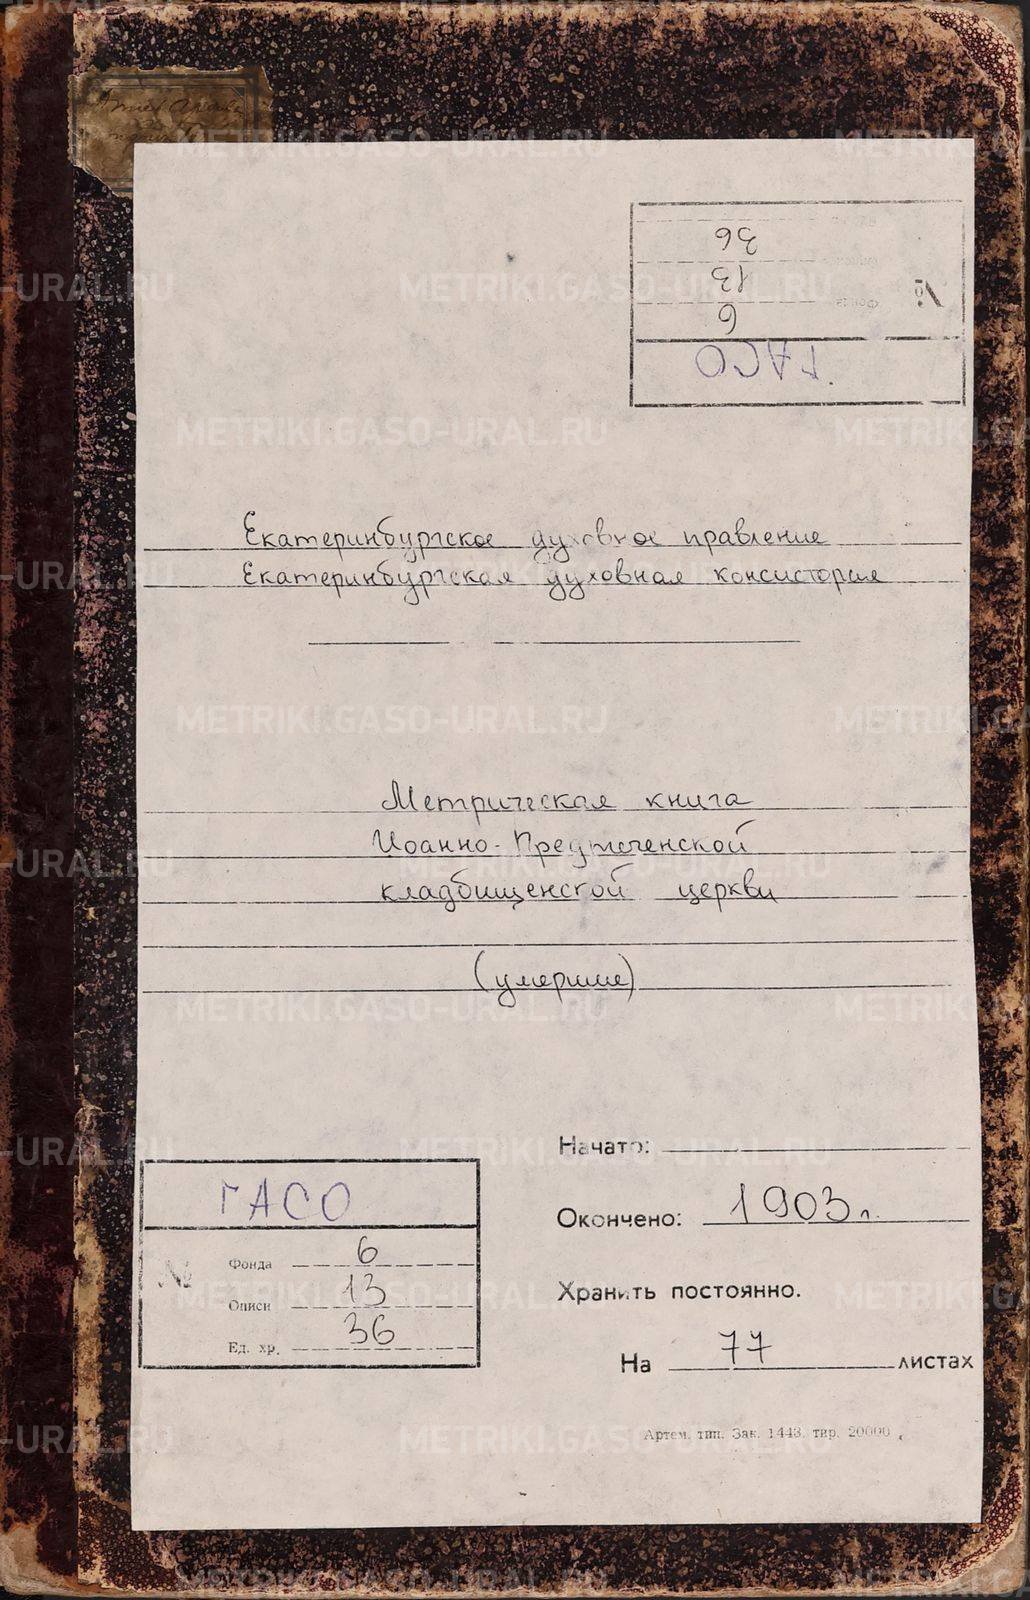 36
13
6
№
ГАСО
Екатеринбургское духовное правление
Екатеринбургская духовная консистория
Метрическая книга
Иоанно-Предтеченской
кладбищенской церкви
(умершие)
Начато:
Окончено: 1903 г.
Хранить постоянно.
На 77 листах
ГАСО
№
Фонда 6
Описи 13
Ед. хр. 36
Артем. тип. Зак. 1443. тир. 20000
METRIKI.GASO-URAL.RU